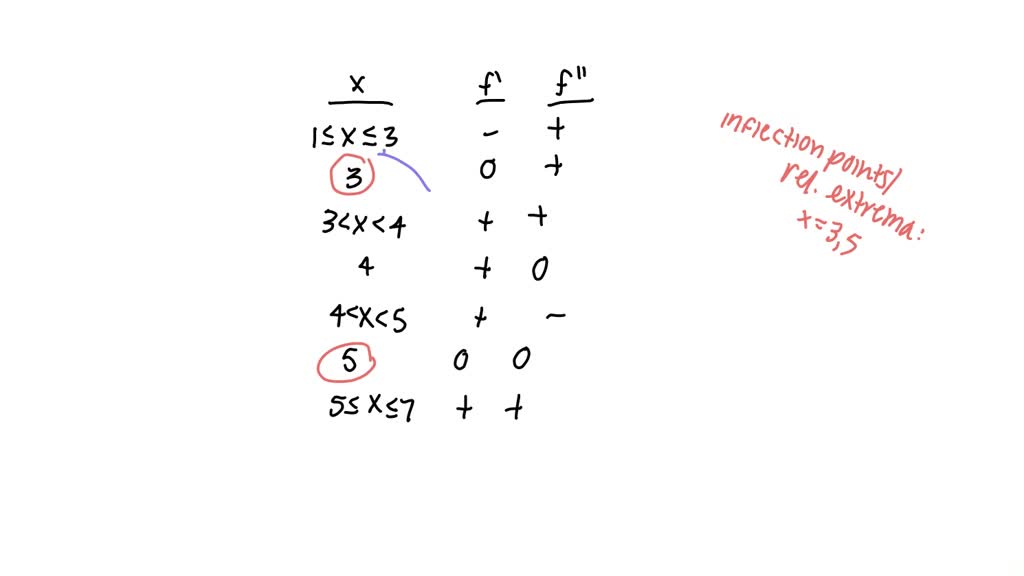 x f' f"
1 ≤ x ≤ 3 - +
3 0 +
3 < x < 4 + +
4 + 0
4 < x < 5 + -
5 0 0
5 ≤ x ≤ 7 + +
inflection points/
rel. extrema:
x = 3, 5